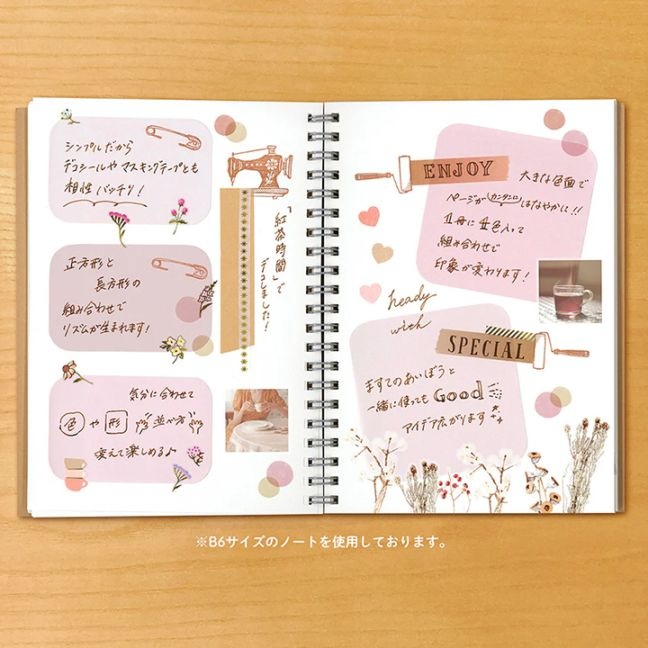 シンプルだから
デコシールや マスキングテープとも
相性バッチリ！
正方形と
長方形の
組み合わせで
リズムが生まれます！
気分に合わせて
色や形 並べ方
変えて楽しめる♪
「紅茶時間」で
デコしました！
ENJOY
大きな色面で
ページがカンタンにはなやかに!!
1冊に4色入って
組み合わせで
印象が変わります！
heady
with
SPECIAL
ますてのあいぼうと
一緒に使っても Good
アイデア広がります
※B6サイズのノートを使用しております。